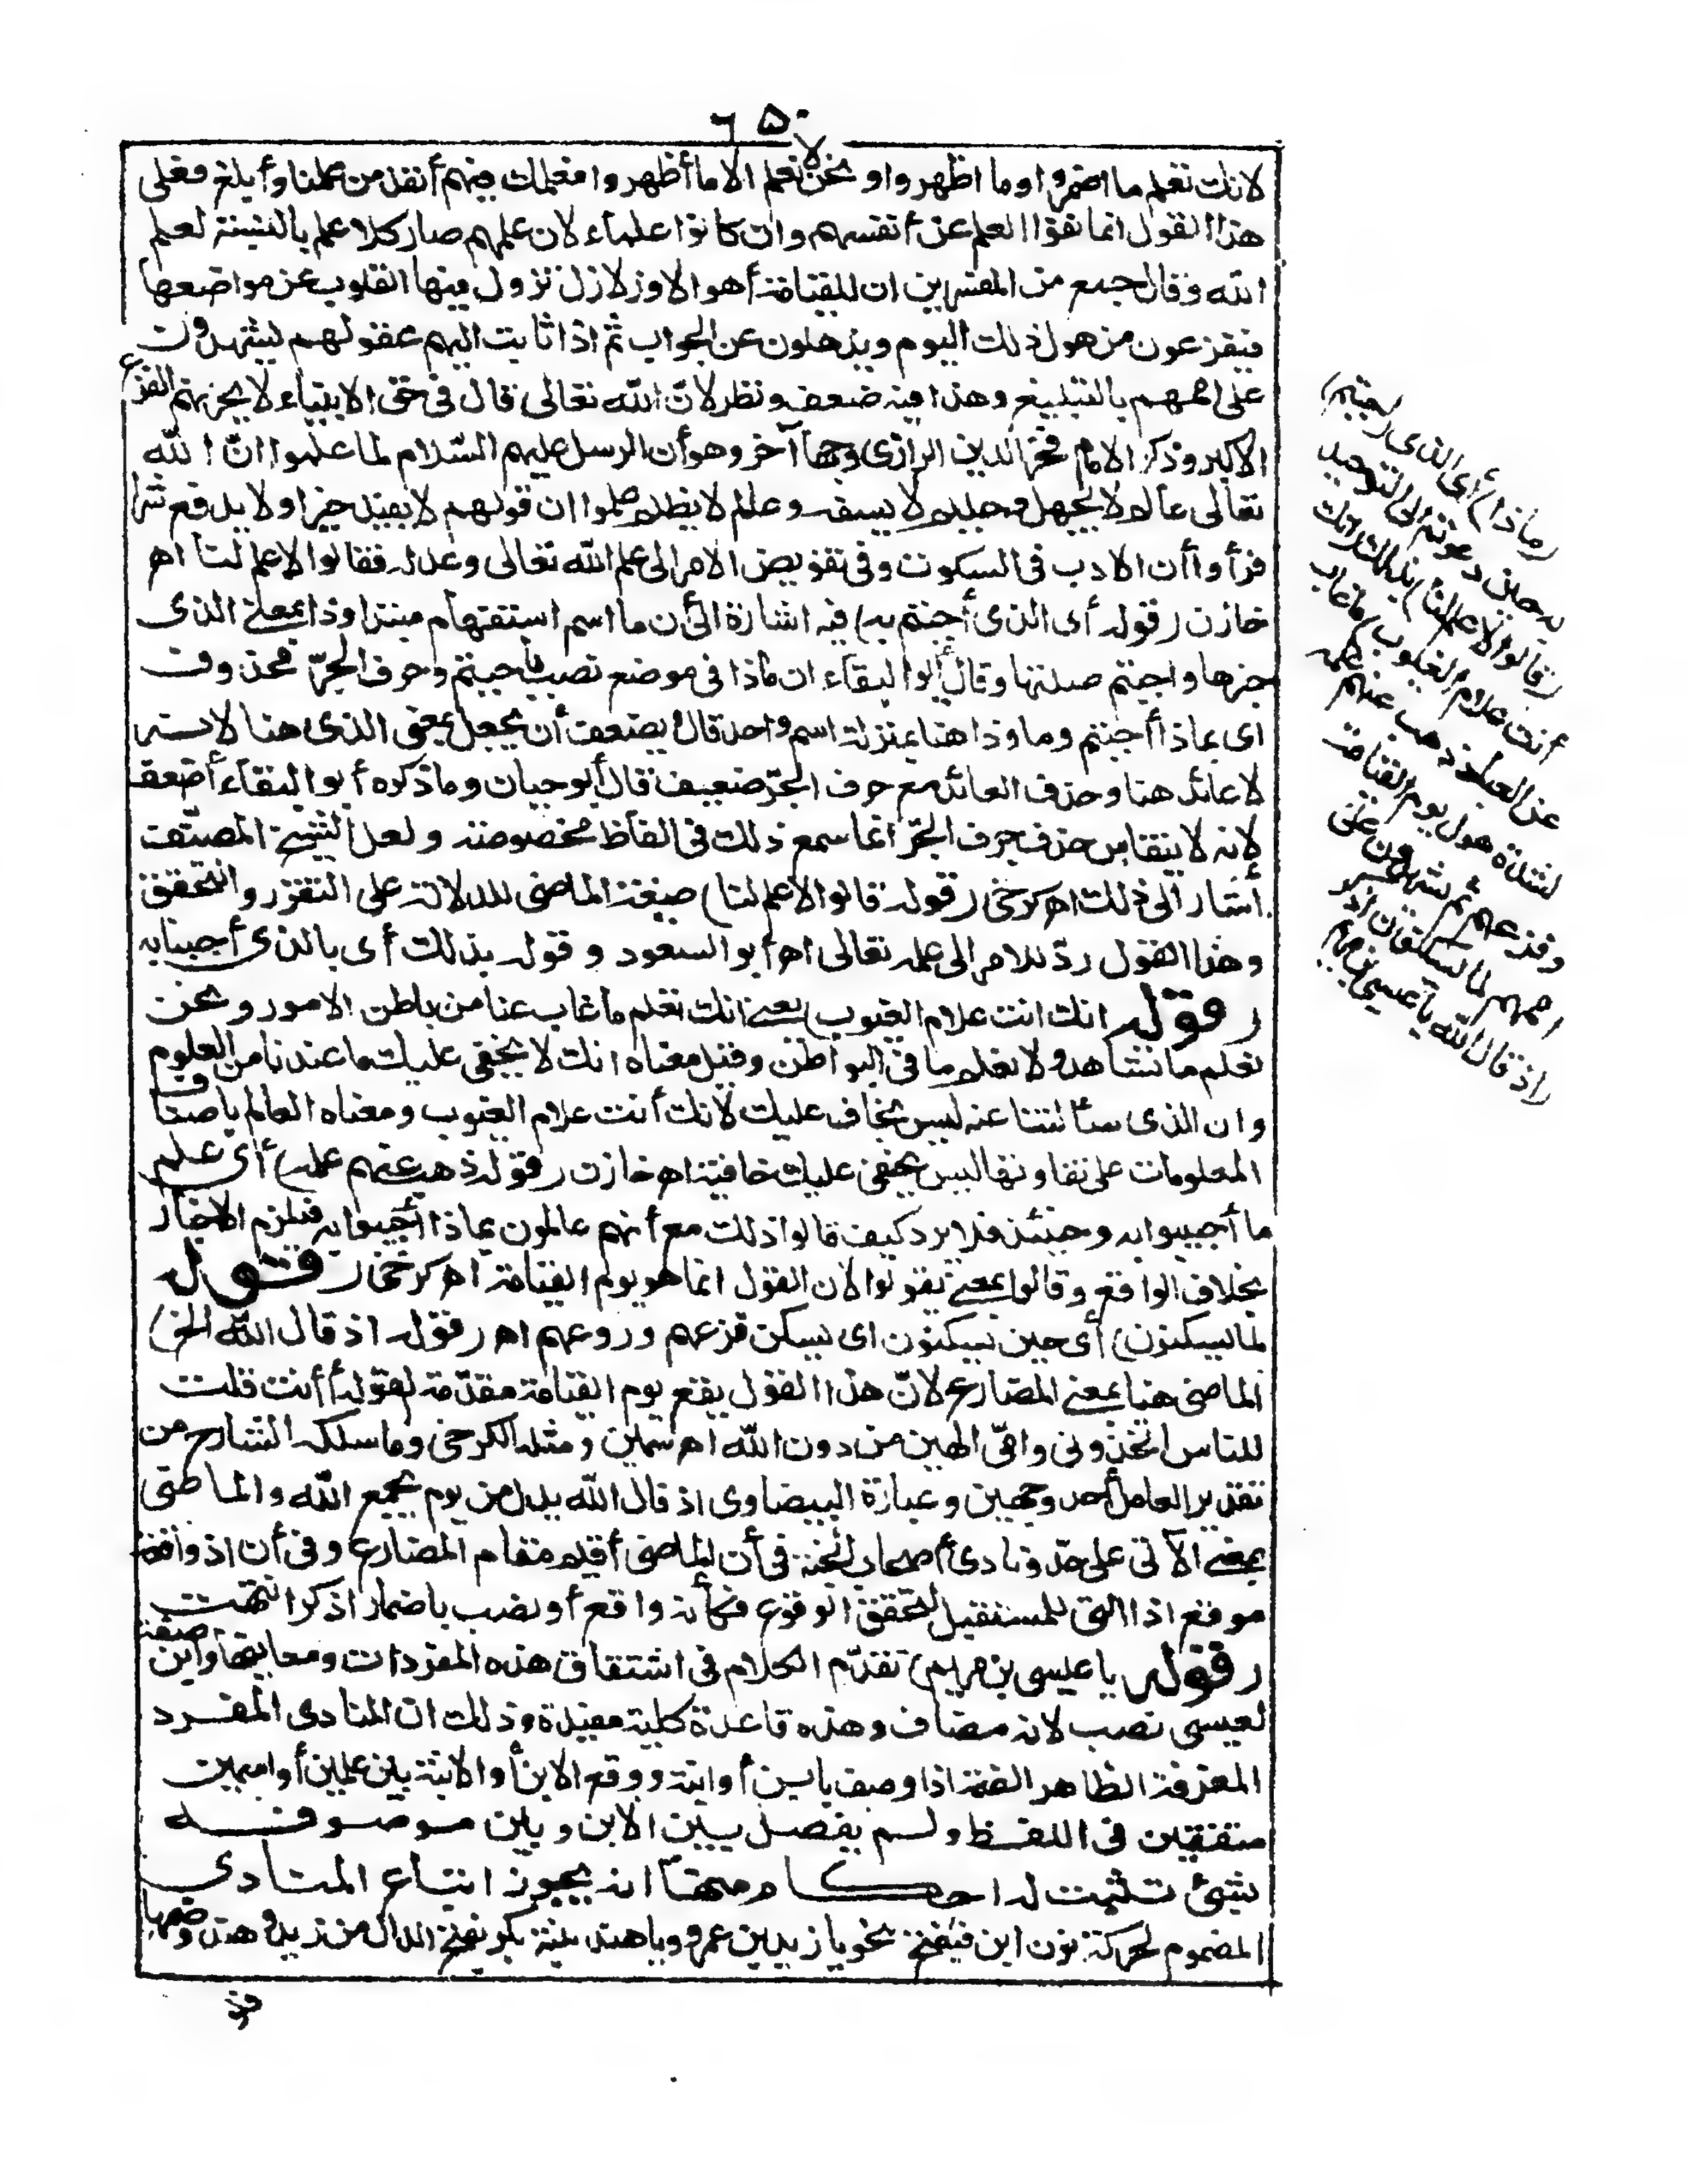 ٦٥٠
لانك تعلم ما اضمروا وما اظهروا ونحن لا نعلم الا ما أظهروا فعلمك فيهم أنفذ من علمنا وأبلغ فعلى
هذا القول انما نفوا العلم عن أنفسهم وان كانوا علماء لان علمهم صار كلا علم بالنسبة لعلم
الله وقال جمع من المفسرين ان للقيامة أهوالا وزلازل تزول فيها القلوب عن مواضعها
فيفزعون من هول ذلك اليوم ويذهلون عن الجواب ثم اذا ثابت اليهم عقولهم يشهدون
على اممهم بالتبليغ وهذا فيه ضعف ونظر لانّ الله تعالى قال فى حق الانبياء لا يحزنهم الفزع
الاكبر وذكر الامام فخر الدين الرازى وجها آخر وهو أن الرسل عليهم السّلام لما علموا انّ الله
تعالى عالم لا يجهل وحليم لا يسفه وعادل لا يظلم علموا ان قولهم لا يفيد خيرا ولا يدفع شرا
فرأوا أن الادب فى السكوت وفى تفويض الامر الى علم الله تعالى وعدله فقالوا لا علم لنا اهـ
خازن (قوله أى الذى أجبتم به) فيه اشارة الى أن ما اسم استفهام مبتدا وذا بمعنى الذى
خبرها واجبتم صلتها وقال أبو البقاء ان ماذا فى موضع نصب بأجبتم وحرف الجرّ محذوف
اى بماذا أجبتم وما وذا هنا بمنزلة اسم واحد قال ويضعف أن يجعل بمعنى الذى هنا لانه
لا عائد هنا وحذف العائد مع حرف الجرّ ضعيف قال أبو حيان وما ذكره أبو البقاء أضعف
لانه لا ينقاس حذف حرف الجرّ انما سمع ذلك فى الفاظ مخصوصة ولعل الشيخ المصنّف
أشار الى ذلك اهـ كرخى (قوله قالوا لا علم لنا) صيغة الماضى للدلالة على التقرر والتحقق
وهذا القول ردّ للامر الى علمه تعالى اهـ أبو السعود وقوله بذلك أى بالذى أجبنا به
(قوله انك انت علام الغيوب) يعنى انك تعلم ما غاب عنا من باطن الامور ونحن
نعلم ما نشاهد ولا نعلم ما فى البواطن وقيل معناه انك لا يخفى عليك ما عندنا من العلوم
وان الذى سألتنا عنه ليس بخاف عليك لانك أنت علام الغيوب ومعناه العالم باصناف
المعلومات على تفاوتها ليس يخفى عليك خافية اهـ خازن (قوله ذهب عنهم علمه) أى علم
ما أجيبوا به وحينئذ فلا يرد كيف قالوا ذلك مع أنهم عالمون بماذا أجيبوا به فيلزم الاخبار
بخلاف الواقع وقالوا بمعنى يقولوا لان القول انما هو يوم القيامة اهـ كرخى (قوله
لما يسكنون) أى حين يسكنون اى يسكن فزعهم وروعهم اهـ (قوله اذ قال الله الخ)
الماضى هنا بمعنى المضارع لانّ هذا القول يقع يوم القيامة مقدّمة لقوله أأنت قلت
للناس اتخذونى وامّى الهين من دون الله اهـ سمين ومثله الكرخى وما سلكه الشارح من
تقدير العامل أحد وجهين وعبارة البيضاوى اذ قال الله بدل من يوم يجمع الله والماضى
بمعنى الآتى على حدّ ونادى أصحاب الجنة فى أن الماضى أقيم مقام المضارع وفى أن اذ واقعة
موقع اذا التى للمستقبل لتحقق الوقوع فكأنه واقع أو نصب باضمار اذكر انتهت
(قوله يا عيسى بن مريم) تقدّم الكلام فى اشتقاق هذه المفردات ومعانيها وابن صفة
لعيسى نصب لانه مضاف وهذه قاعدة كلية مفيدة وذلك ان المنادى المفرد
المعرفة الظاهر الضمة اذا وصف بابن أو ابنة ووقع الابن أو الابنة بين علمين أو اسمين
متفقين فى اللفظ ولم يفصل بين الابن وبين موصوفه
بشئ تثبت له احكام منها انه يجوز اتباع المنادى
المضموم لحركة نون ابن فيفتح نحو يا زيد بن عمرو ويا هند ابنة بكر بفتح الدال من زيد وهند وضمها
(ماذا) أى الذى (أجبتم)
به حين دعوتم الى التوحيد
(قالوا لا علم لنا) بذلك (انك
أنت علام الغيوب) ما غاب
عن العباد ذهب عنهم علمه
لشدة هول يوم القيامة
وفزعهم ثم يشهدون على
اممهم لما يسكنون اذكر
(اذ قال الله يا عيسى بن مريم